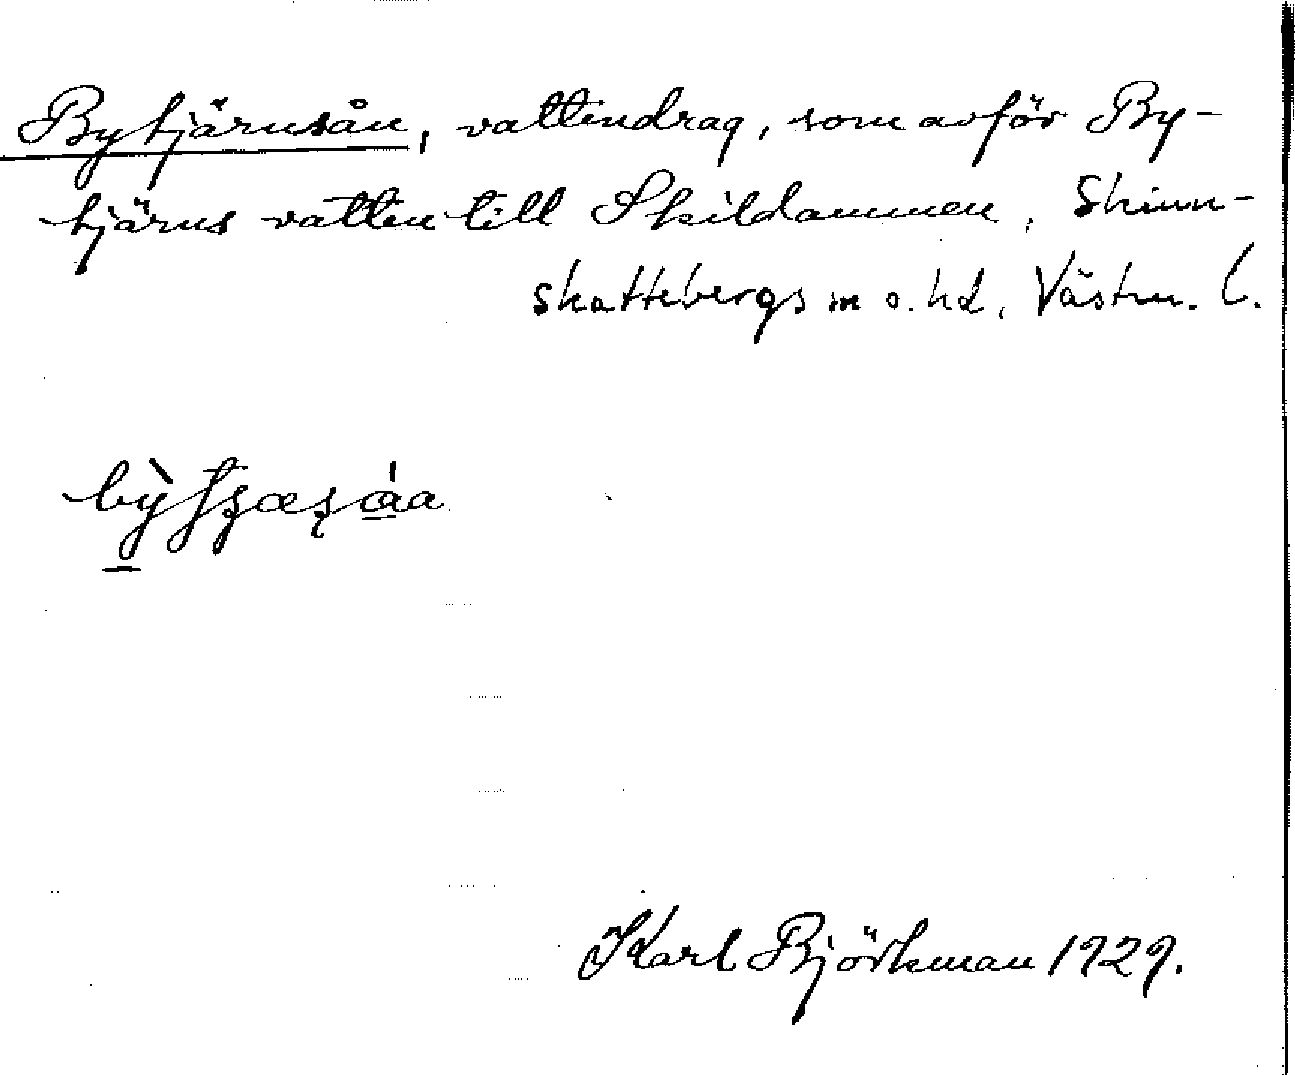 Bytjärnsån, vattendrag, som avför By-
tjärns vatten till Skildammen, Skinn-
skattebergs sn o. hd, Västm. l.
Karl Björkman 1929.